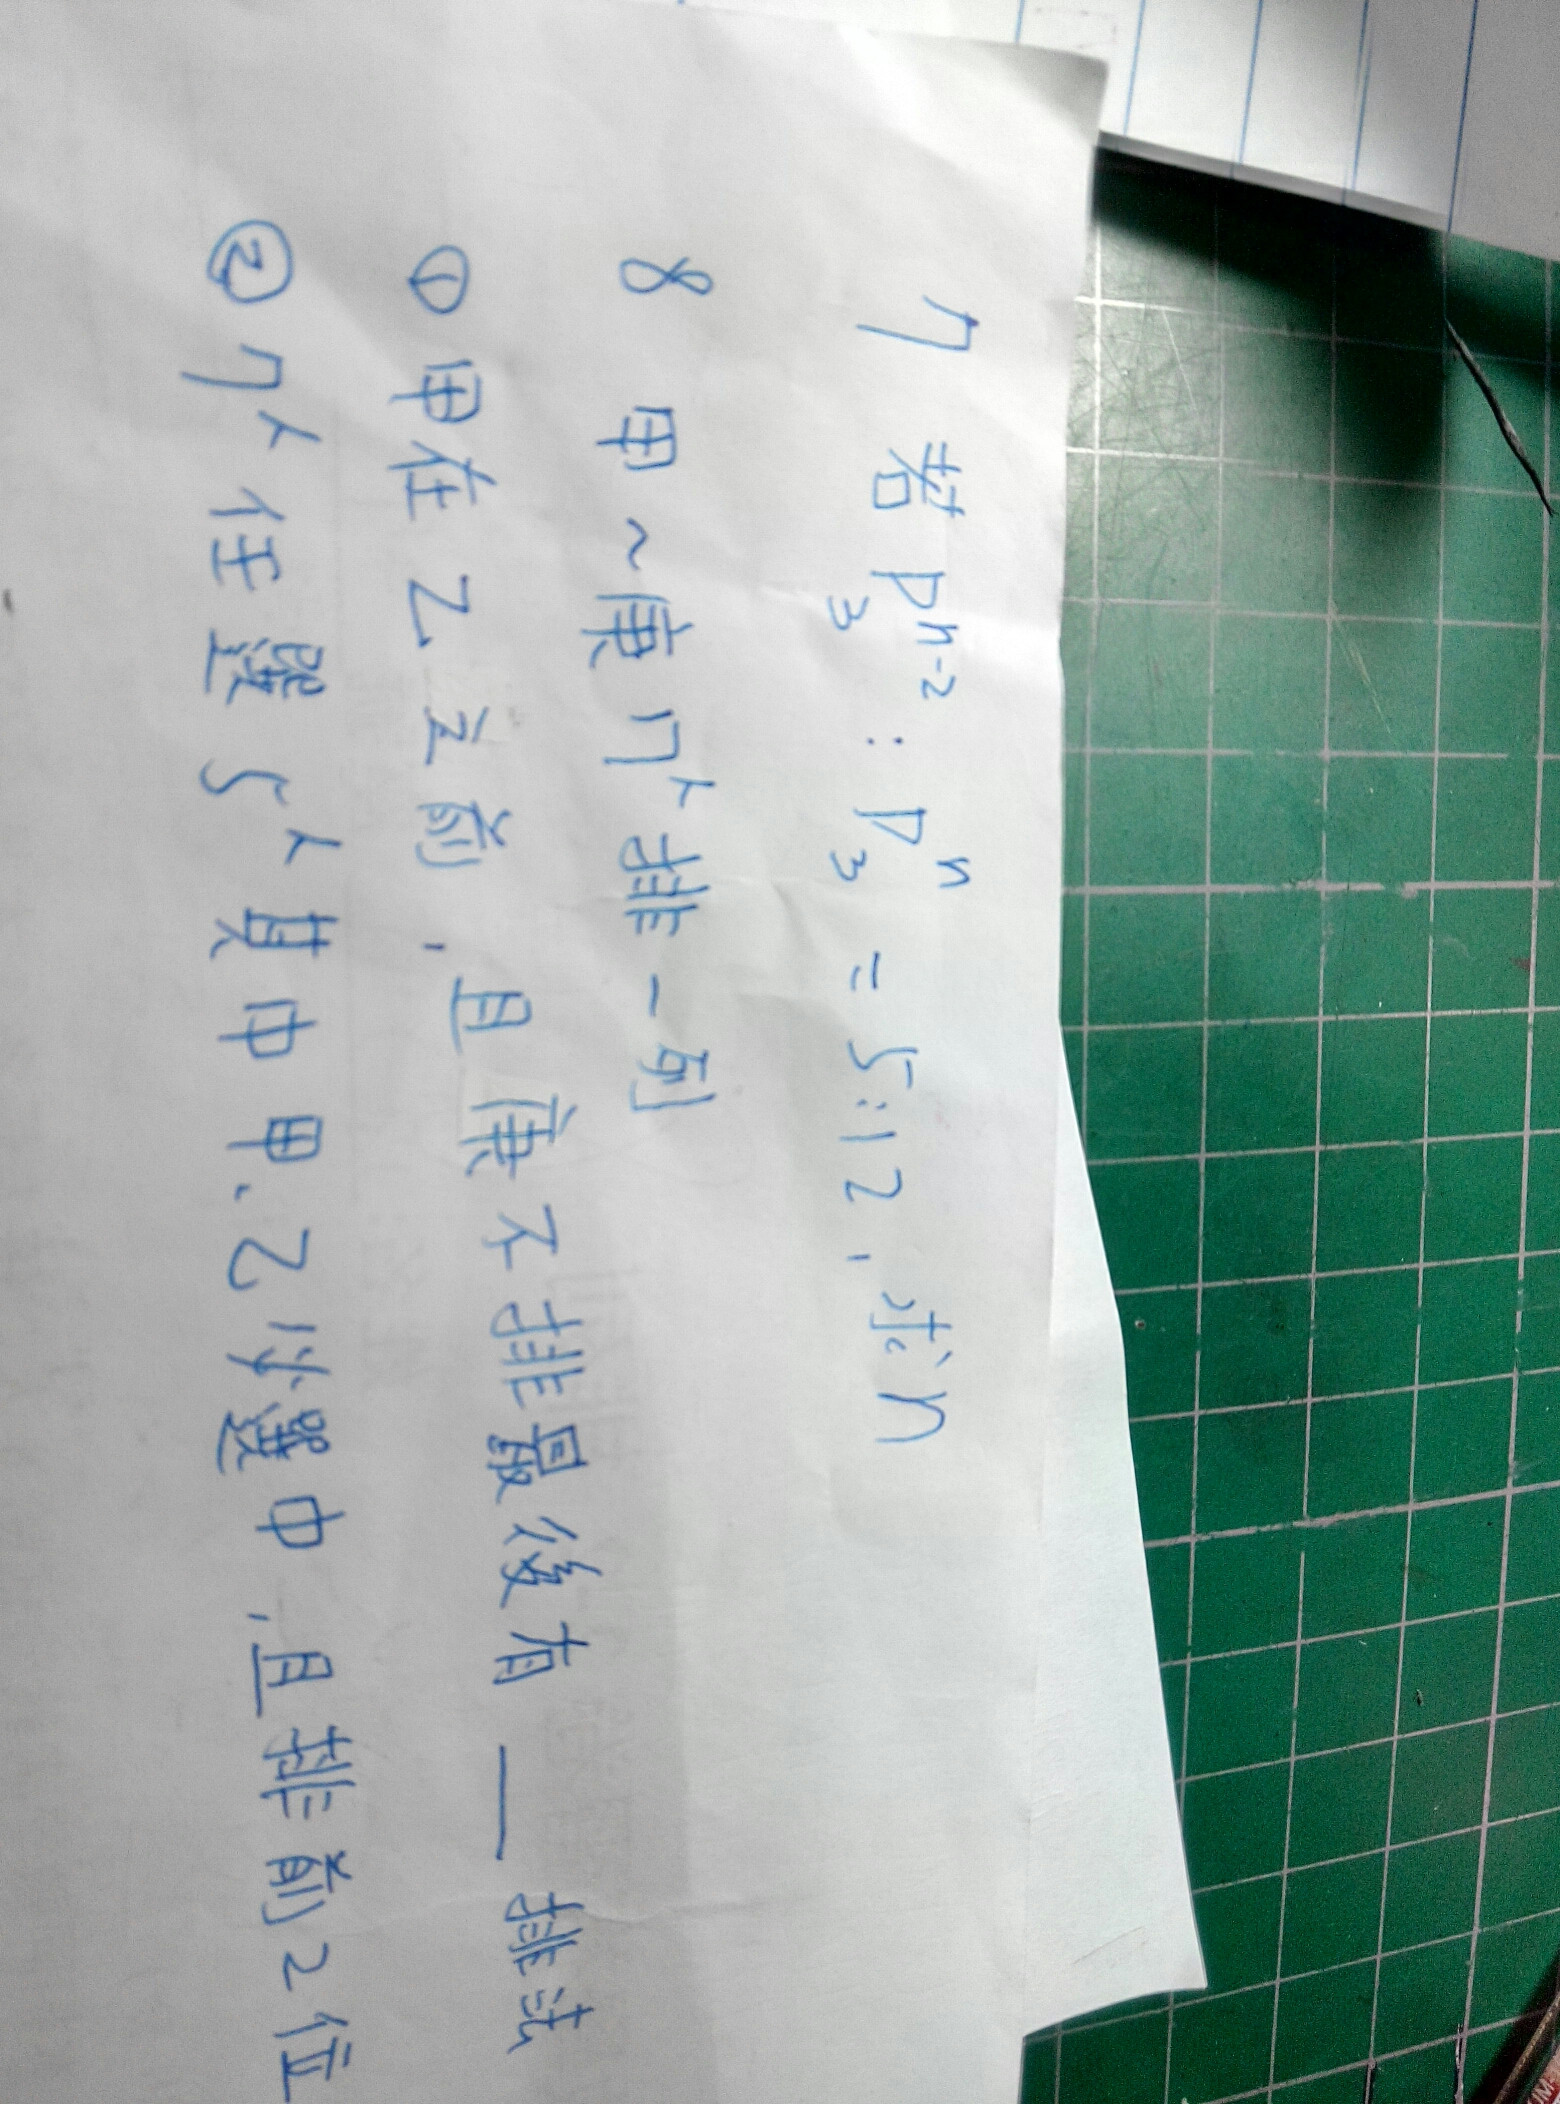 7 若 P₃ⁿ⁻² : P₃ⁿ = 5:12, 求n
8 甲~庚 7人排一列
① 甲在乙之前, 且庚不排最後有 ___ 排法
② 7人任選5人其中甲、乙必選中, 且排前2位